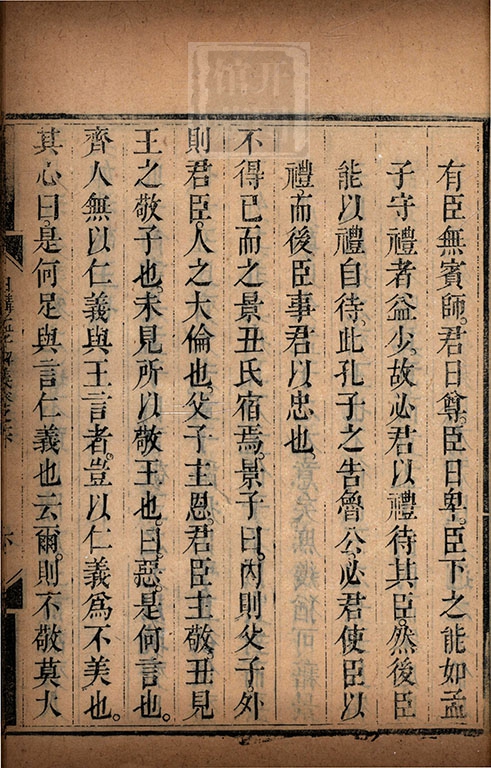 有臣無賓師。君日尊。臣日卑。臣下之能如孟
子守禮者益少。故必君以禮待其臣。然後臣
能以禮自待。此孔子之告魯公。必君使臣以
禮。而後臣事君以忠也。
不得已而之景丑氏宿焉。景子曰。內則父子。外
則君臣。人之大倫也。父子主恩。君臣主敬。丑見
王之敬子也。未見所以敬王也。曰。惡。是何言也。
齊人無以仁義與王言者。豈以仁義爲不美也。
其心曰。是何足與言仁義也云爾。則不敬莫大
日講 解義卷之 六